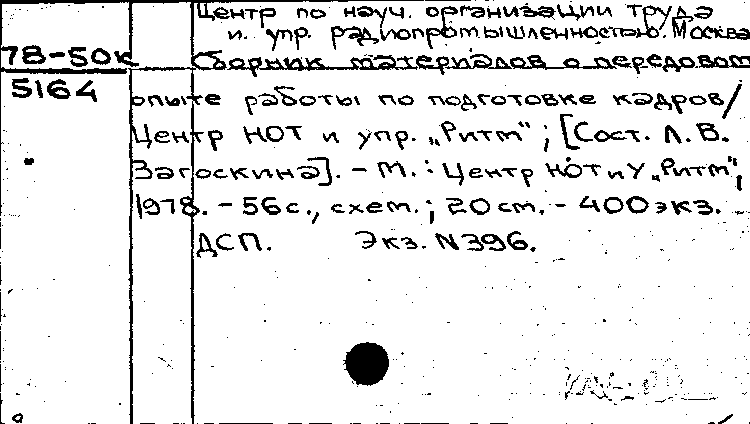 Центр по науч. организации труда
и упр. радиопромышленностью. Москва
78-50к Сборник материалов о передовом
5164 опыте работы по подготовке кадров/
Центр НОТ и упр. „Ритм"; [Сост. Л. В.
Загоскина]. - М. : Центр НОТ и У „Ритм",
1978. - 56 с., схем.; 20 см. - 400 экз.
ДСП. Экз. N396.